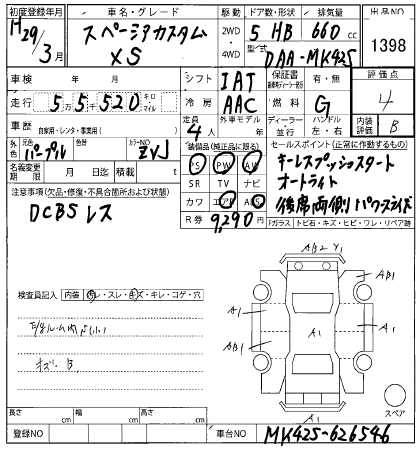 初度登録年月 車名・グレード 駆動 ドア数・形状 排気量 出品NO
H29/3月 スペーシアカスタム XS 2WD 4WD 5 HB 660 cc 1398
型式 DAA-MK42S
車検 年 月 シフト IAT 保証書 有・無 評価点
走行 55520 キロ マイル 冷房 AAC 燃料 G 4
車歴 自家用・レンタ・事業用( ) 定員 4人 外車モデル ディーラー 並行 ハンドル 左・右 内装評価 B
外色 パープル 色替 カラーNO ZVJ 装備品(純正品に限る) セールスポイント(正常に作動するもの)
名義変更期限 月 日迄 積載量 t PS PW AW キーレスプッシュスタート
注意事項(欠品・修復・不具合箇所および状態) SR TV ナビ オートライト
DCBSレス カワ エアB ABS 後席両側パワースライド
R券 9,290円 ガラス トビ石・キズ・ヒビ・ワレ・リペア跡
検査員記入 内装 汚レ・スレ・キズ・キレ・コゲ・穴
AB2 Y1
AB1
A1
A1
A1
AB1
キズ・B
A1
スペア
長さ cm 幅 cm 高さ cm
登録NO 車台NO MK42S-626546